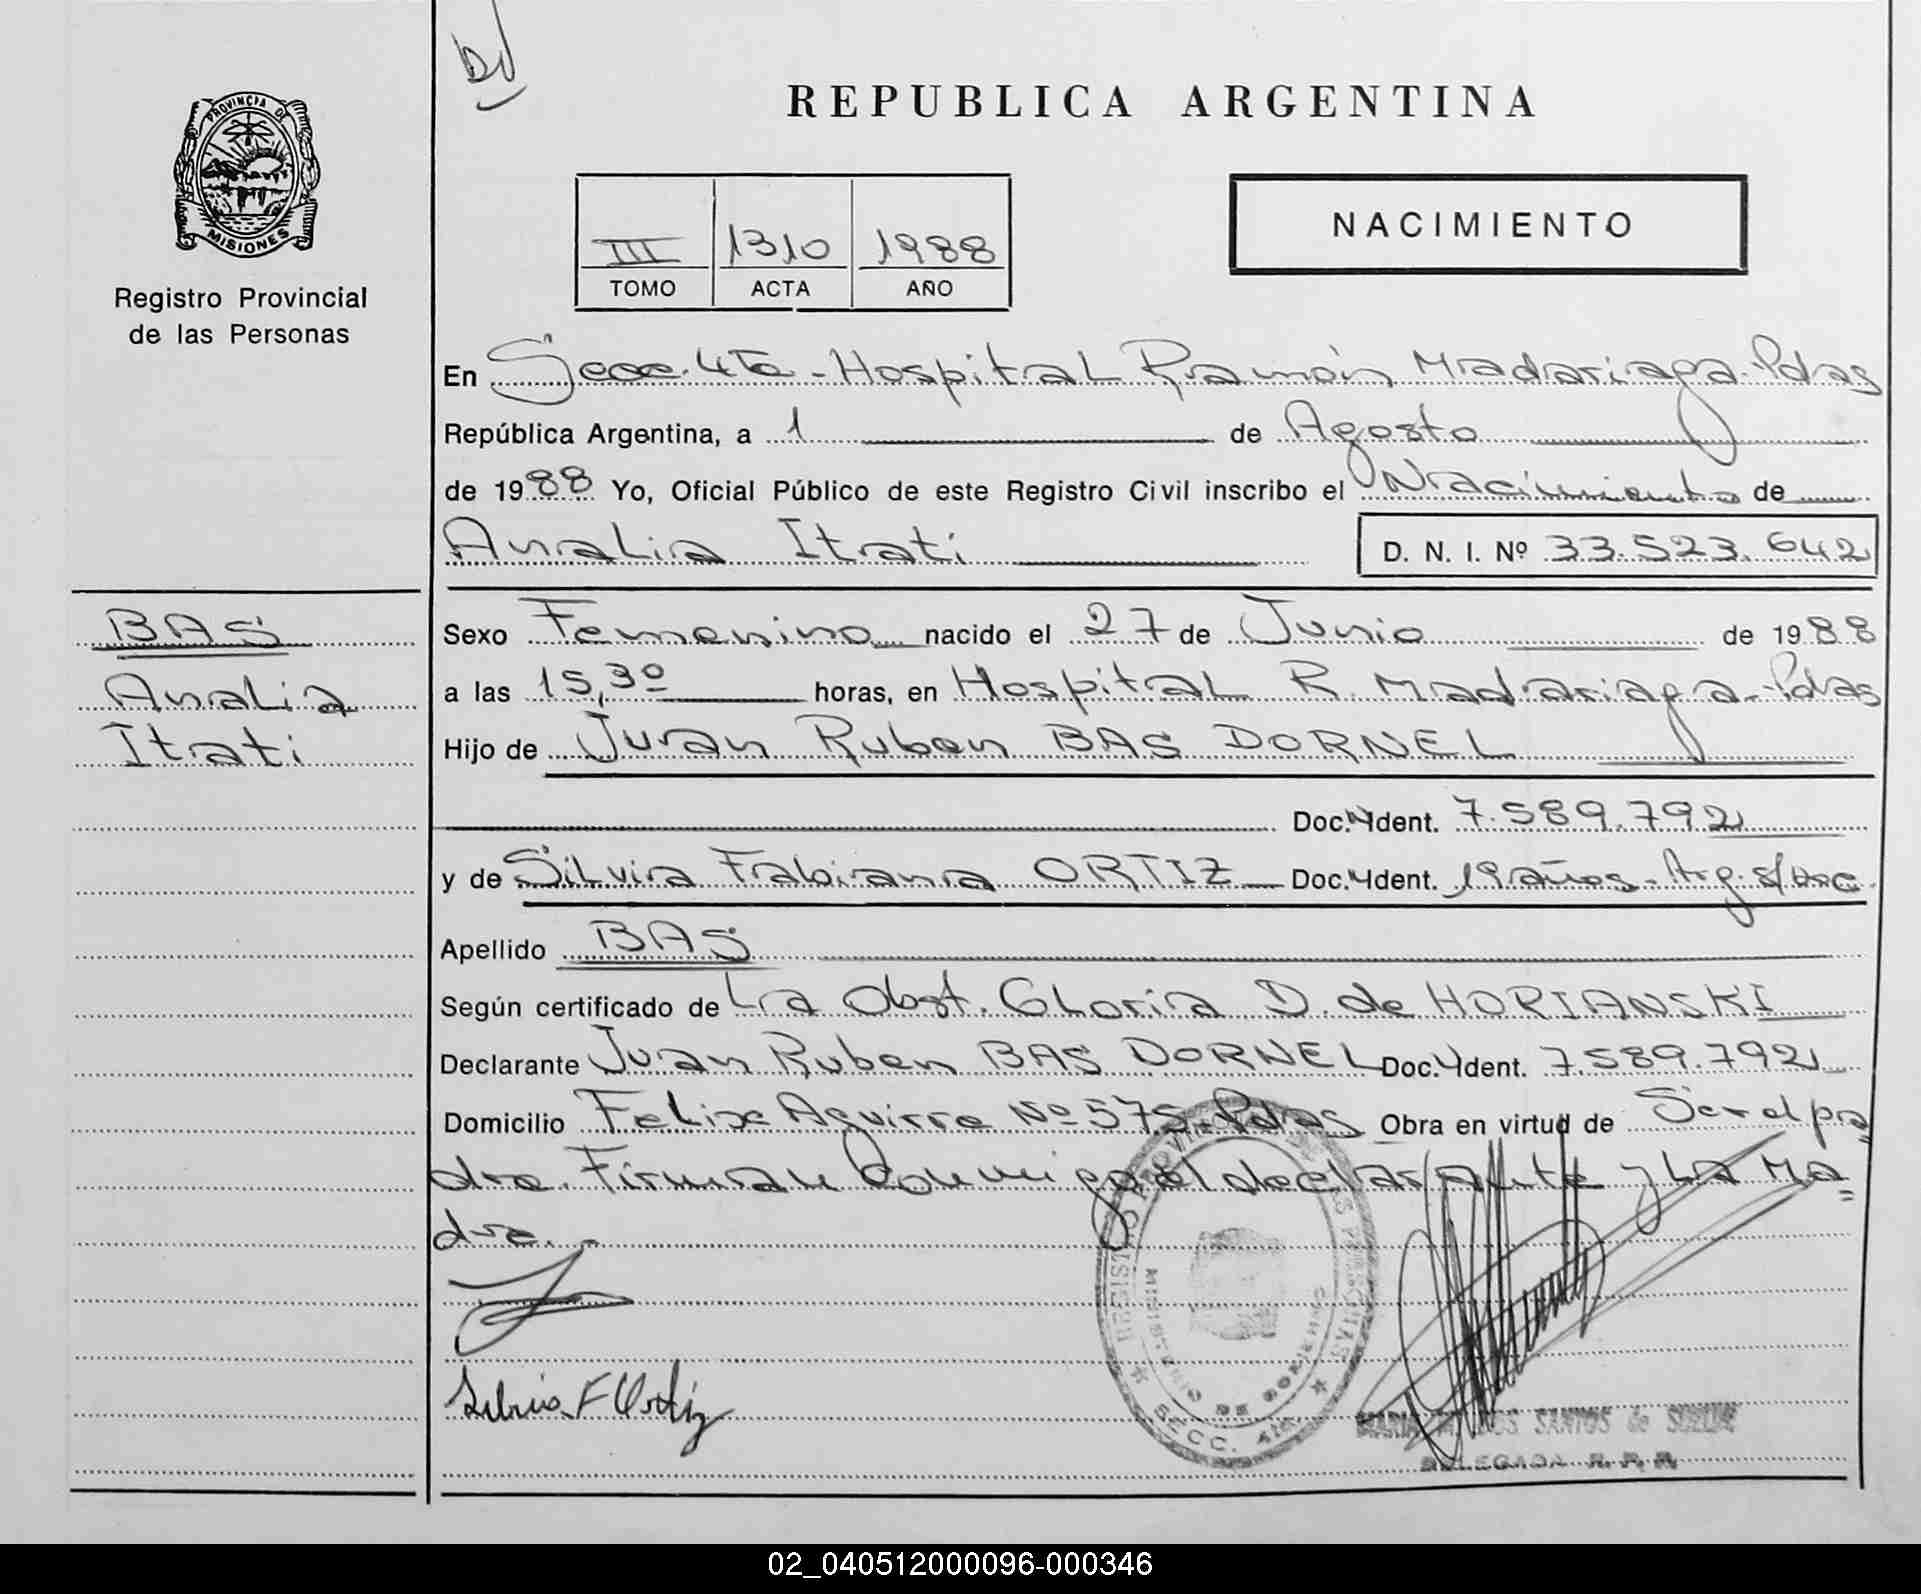 DJ
PROVINCIA DE
MISIONES
Registro Provincial
de las Personas
REPUBLICA ARGENTINA
III 1310 1988
TOMO ACTA AÑO
NACIMIENTO
En Secc. 4ta - Hospital Ramón Madariaga - Pdas
República Argentina, a 1 de Agosto
de 1988 Yo, Oficial Público de este Registro Civil inscribo el Nacimiento de
Analia Itatí
D. N. I. Nº 33.523.642
BAS
Analia
Itati
Sexo Femenino nacido el 27 de Junio de 1988
a las 15,30 horas, en Hospital R. Madariaga - Pdas
Hijo de Juan Ruben BAS DORNEL
Doc. Ident. 7.589.792
y de Silvia Fabiana ORTIZ Doc. Ident. 19 años - Arg. s/doc.
Apellido BAS
Según certificado de La Obst. Gloria D. de HORIANSKI
Declarante Juan Ruben BAS DORNEL Doc. Ident. 7.589.792
Domicilio Felix Aguirre Nº 575 - Pdas Obra en virtud de Ser el pa
dre. Firman conmigo el declarante y La Ma
dre. -
Silvia F Ortiz
REGISTRO PROVINCIAL DE LAS PERSONAS
MINISTERIO DE GOBIERNO
SECC. 4ta.
MARIA DOS SANTOS de
DELEGADA R. P. P.
02_040512000096-000346